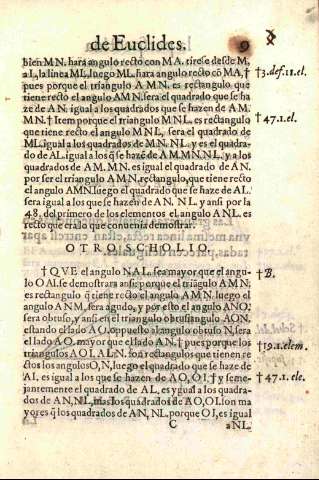 de Euclides. 9
bien M N. hara angulo recto con M A. tirese desde M,
a L, la linea ML, luego ML hara angulo recto cõ MA, † †3.def.11.el.
pues porque el triangulo A M N. es rectangulo que
tiene recto el angulo AMN, sera el quadrado que se ha
ze de AN. igual a los quadrados que se hazen de A M.
M N. † Item porque el triangulo M N L. es rectangulo †47.1.el.
que tiene recto el angulo M N L, sera el quadrado de
ML. igual a los quadrados de M N. N L. y es el quadra-
do de AL. igual a los q̃ se hazẽ de A M. M N. N L, y a los
quadrados de A M. M N. es igual el quadrado de A N.
por ser el triangulo A M N, rectangulo, que tiene recto
el angulo AMN luego el quadrado que se haze de A L
sera igual a los que se hazen de A N. N L. y ansi por la
48. del primero de los elementos el angulo A N L. es
recto que era lo que conuenia demostrar.
O T R O S C H O L I O.
† QVE el angulo N A L. sea mayor que el angu- † B.
lo O A I. se demostrara ansi: porque el triãgulo AMN.
es rectangulo q̃ tiene recto el angulo A M N. luego el
angulo A N M, sera agudo, y por esto el angulo ANO,
sera obtuso, y ansi en el triangulo obtusangulo AON,
estando el lado A O, oppuesto al angulo obtuso N, sera
el lado A O. mayor que el lado A N. † pues porque los †19.1.elem.
triangulos A O I, A L N. son rectangulos que tienen re
ctos los angulos O, N, luego el quadrado que se haze de
AI. es igual a los que se hazen de A O, O I. † y seme- †47.1.ele.
jantemente el quadrado de A L, es ygual a los quadra-
dos de A N, N L, mas los quadrados de A O, O I. son ma
yores q̃ los quadrados de A N, N L. porque O I, es igual
C a NL.